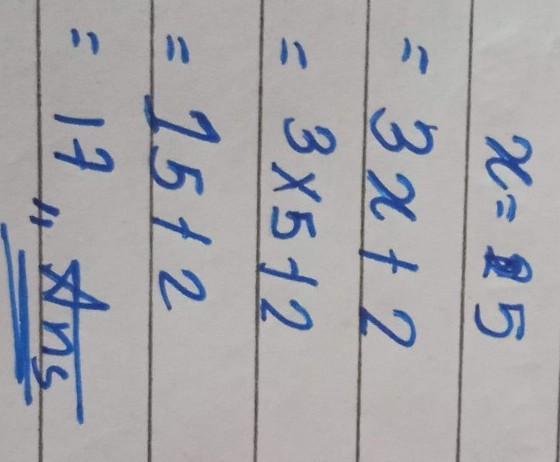 x = 5
= 3x + 2
= 3 x 5 + 2
= 15 + 2
= 17 " Ans